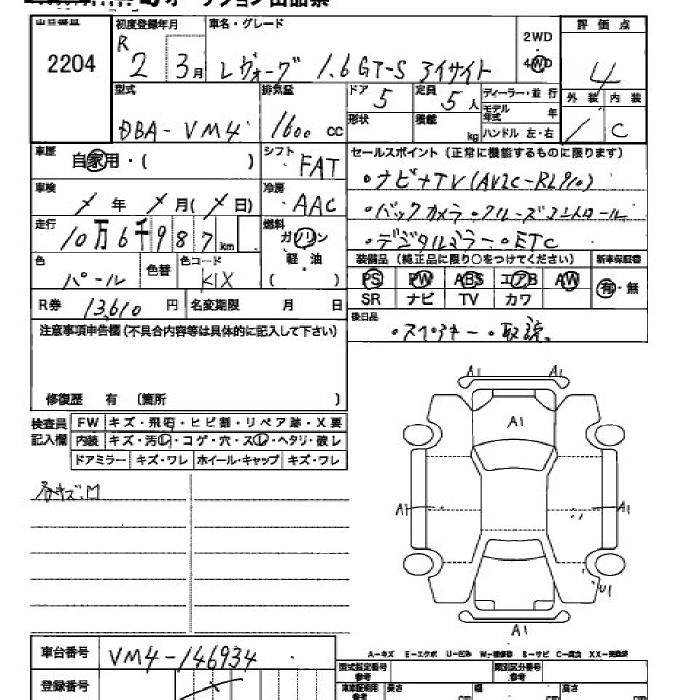 オークション出品票
出品番号 2204
初度登録年月 R 2 3月
車名・グレード レヴォーグ 1.6GT-S アイサイト
2WD
4WD
評価点 4
外装 内装 C
型式 DBA-VM4
排気量 1600 cc
ドア 5
形状
定員 5人
積載 kg
ディーラー・並行
モデル年式 年
ハンドル 左・右
車歴 自家用・( )
シフト FAT
車検 年 月( 日)
冷房 AAC
走行 10万6千987 km
燃料 ガソリン
軽油
( )
セールスポイント(正常に機能するものに限ります)
・ナビ+TV(AVIC-RL910)
・バックカメラ・クルーズコントロール
・デジタルミラー・ETC
色 パール
色替
色コード K1X
装備品(純正品に限り○をつけてください)
PS PW ABS エアB AW
SR ナビ TV カワ
新車保証書 有・無
R券 13,610 円
名変期限 月 日
後日品 ・スペアキー・取説
注意事項申告欄(不具合内容等は具体的に記入して下さい)
修復歴 有 〔箇所 〕
検査員記入欄
FW キズ・飛石・ヒビ割・リペア跡・X要
内装 キズ・汚レ・コゲ・穴・スレ・ヘタリ・破レ
ドアミラー キズ・ワレ ホイール・キャップ キズ・ワレ
各キズ.M
A1 A1
A1
A1 A1
U1
A1
A-キズ E-エクボ U-凹み W-補修跡 S-サビ C-腐食 XX-交換跡
車台番号 VM4-146934
登録番号
型式指定番号
類別区分番号
参考
長さ cm
幅 cm
高さ cm